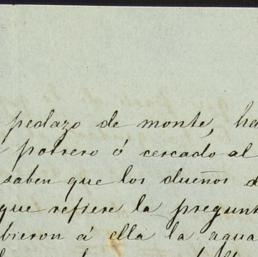 pedazo de monte, ha
potrero ó cercado al
saben que los dueños d
que refiere la pregunt
bieron á ella la agua